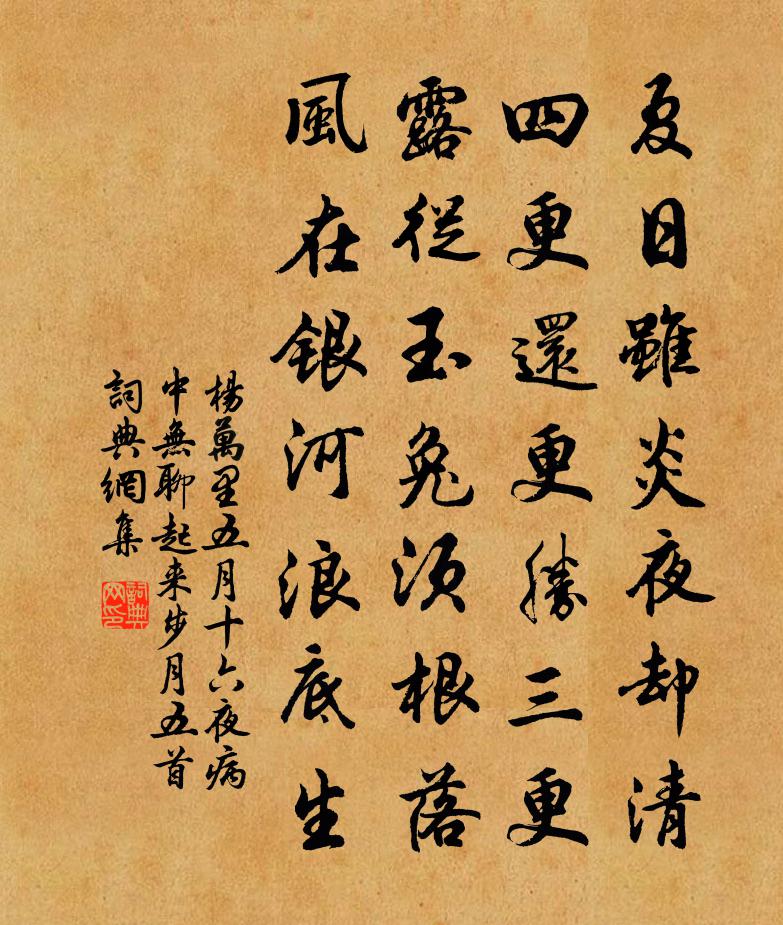 夏日雖炎夜却清
四更還更勝三更
露從玉兔須根落
風在銀河浪底生
楊萬里五月十六夜病
中無聊起来步月五首
詞典網集
詞典網印